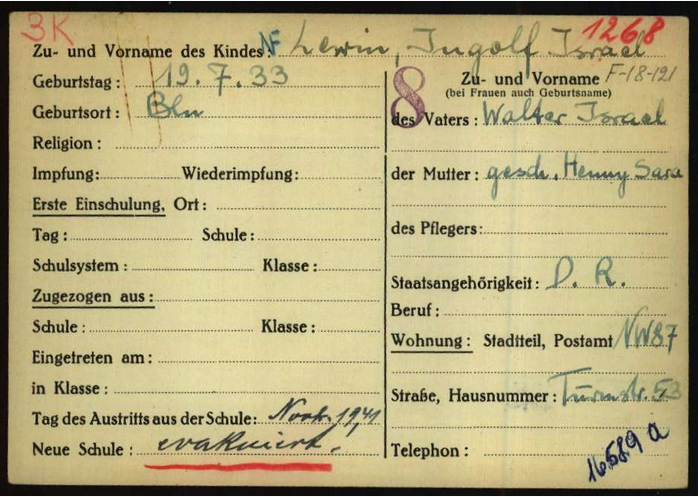 3K
1268
Zu- und Vorname des Kindes: NF Lewin, Ingolf Israel
F-18-121
Geburtstag: 19. 7. 33
Geburtsort: Bln
Religion:
Impfung: Wiederimpfung:
Erste Einschulung, Ort:
Tag: Schule:
Schulsystem: Klasse:
Zugezogen aus:
Schule: Klasse:
Eingetreten am:
in Klasse:
Tag des Austritts aus der Schule: 1941
Neue Schule: evakuiert.
8
Zu- und Vorname
(bei Frauen auch Geburtsname)
des Vaters: Walter Israel
der Mutter: gesch. Henny Sara
des Pflegers:
Staatsangehörigkeit: D. R.
Beruf:
Wohnung: Stadtteil, Postamt NW87
Straße, Hausnummer: Turmstr. 53
Telephon:
16589a